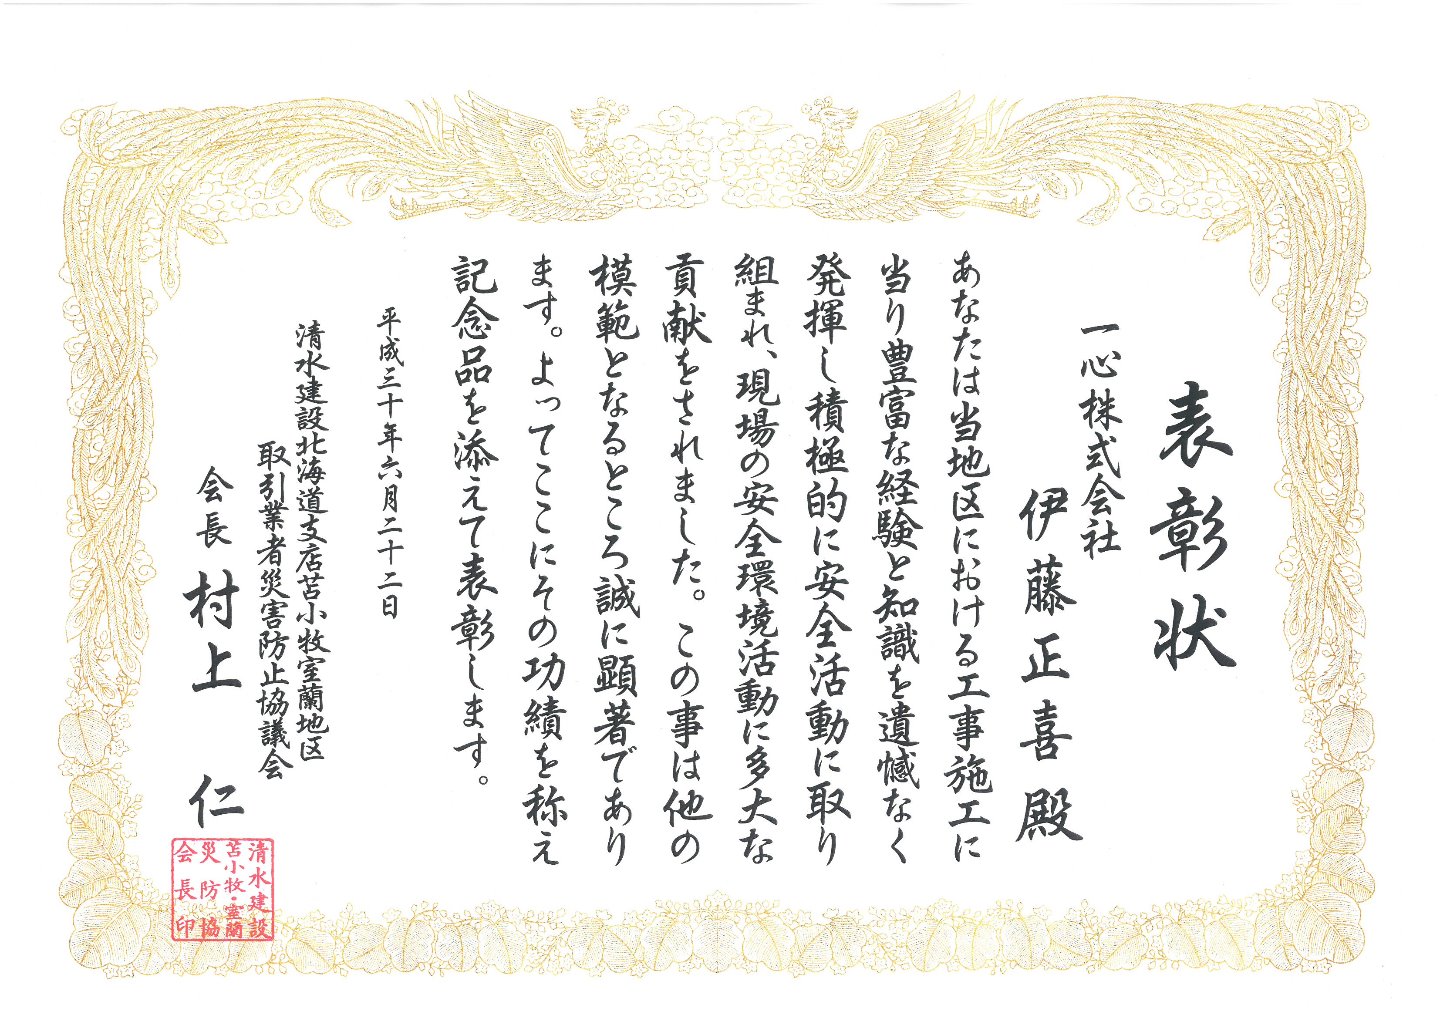 表彰状
一心株式会社
伊藤正喜殿
あなたは当地区における工事施工に
当り豊富な経験と知識を遺憾なく
発揮し積極的に安全活動に取り
組まれ、現場の安全環境活動に多大な
貢献をされました。この事は他の
模範となるところ誠に顕著であり
ます。よってここにその功績を称え
記念品を添えて表彰します。
平成三十年六月二十二日
清水建設北海道支店苫小牧室蘭地区
取引業者災害防止協議会
会長 村上 仁
清水建設
苫小牧・室蘭
災防協
会長印